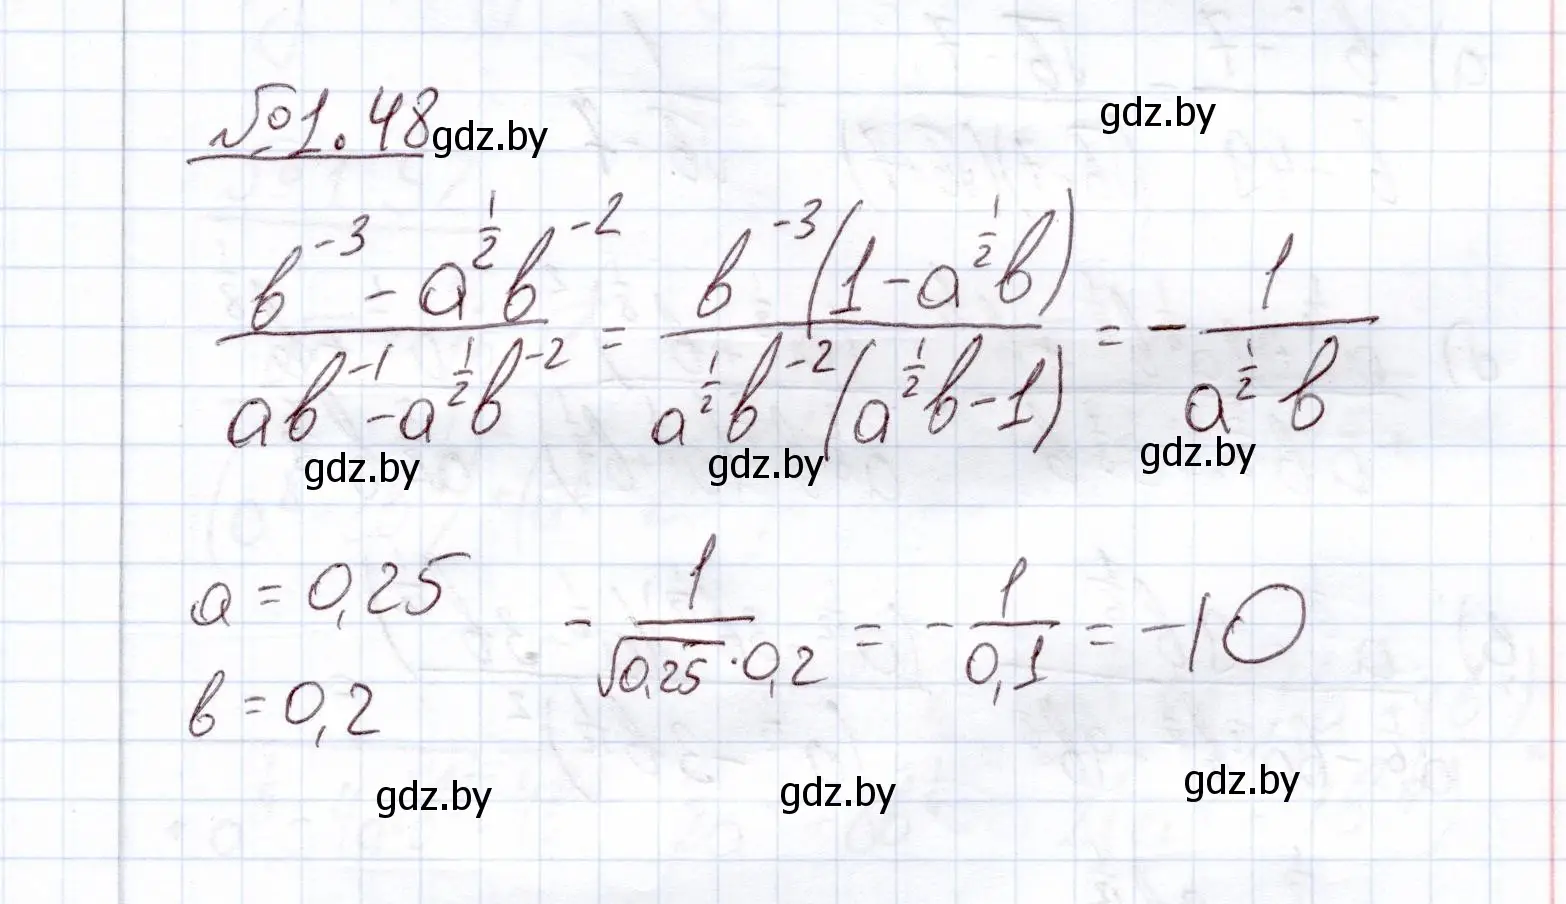 №1.48 gdz.by gdz.by
(b^{-3} - a^{1/2}b^{-2})/(ab^{-1} - a^{1/2}b^{-2}) = (b^{-3}(1 - a^{1/2}b))/(a^{1/2}b^{-2}(a^{1/2}b - 1)) = - 1/(a^{1/2}b)
gdz.by gdz.by gdz.by
a = 0,25 - 1/(√0,25 · 0,2) = - 1/0,1 = -10
b = 0,2
gdz.by gdz.by gdz.by